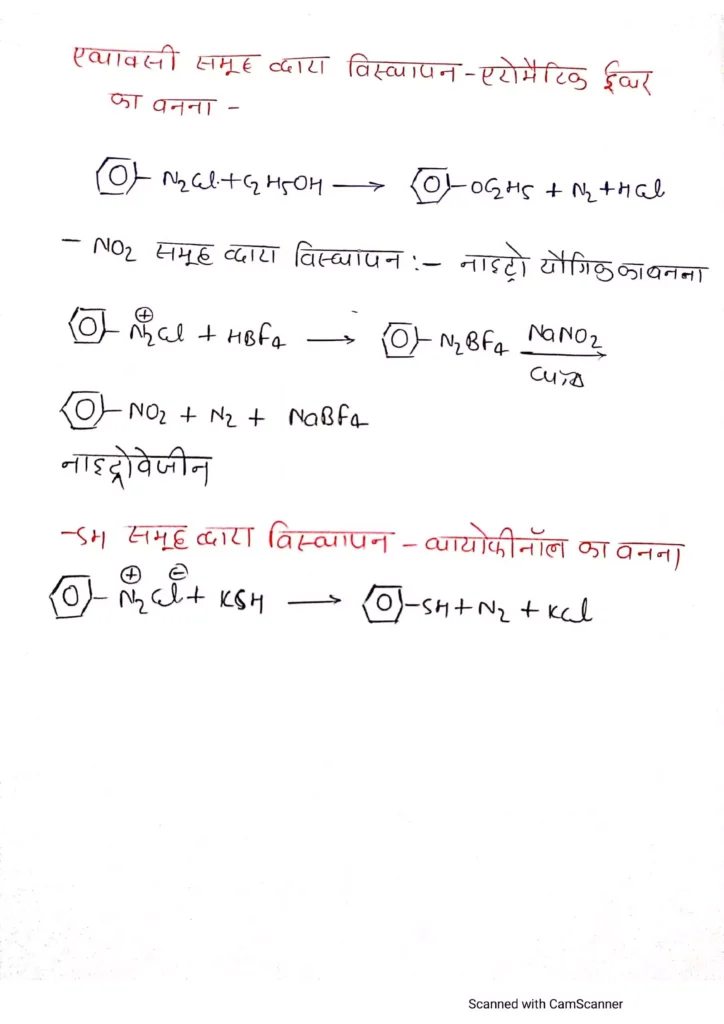 एथाक्सी समूह द्वारा विस्थापन - एरोमैटिक ईथर
का बनना -
N2Cl + C2H5OH ⟶ OC2H5 + N2 + HCl
- NO2 समूह द्वारा विस्थापन :- नाइट्रो यौगिक का बनना
⊕
N2Cl + HBF4 ⟶ N2BF4 NaNO2
Cu, Δ
NO2 + N2 + NaBF4
नाइट्रोबेंजीन
-SH समूह द्वारा विस्थापन - थायोफीनॉल का बनना
⊕ ⊖
N2Cl + KSH ⟶ SH + N2 + KCl
Scanned with CamScanner